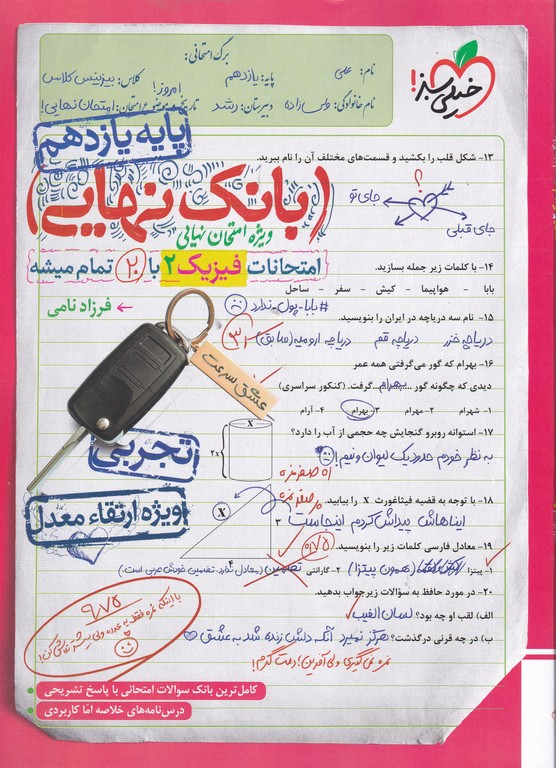 خیلی سبز!
برگ امتحانی:
نام: علی
پایه: یازدهم
کلاس: بیزینس کلاس
نام خانوادگی: ولی‌زاده
دبیرستان: رشد
امروز!
امتحان نهایی!
پایه یازدهم
(بانک نهایی)
ویژه امتحان نهایی
امتحانات فیزیک ۲ با ۲۰ تمام میشه
فرزاد نامی
عشق سرعت
تجربی
ویژه ارتقاء معدل
۱۳- شکل قلب را بکشید و قسمت‌های مختلف آن را نام ببرید.
؟
جای تو
جای قبلی
۱۴- با کلمات زیر جمله بسازید.
بابا - هواپیما - کیش - سفر - ساحل
#بابا-پول-ندارد
۱۵- نام سه دریاچه در ایران را بنویسید.
دریاچه خزر دریاچه قم دریاچه ارومیه (سابق)
۱۶- بهرام که گور می‌گرفتی همه عمر
دیدی که چگونه گور ...بهرام... گرفت. (کنکور سراسری)
۱- شهرام ۲- مهرام ۳- بهرام ۴- آرام
۱۷- استوانه روبرو گنجایش چه حجمی از آب را دارد؟
x
2x
به نظر خودم حدود یک لیوان و نیم!
۱۸- با توجه به قضیه فیثاغورث X را بیابید.
X
۳
۴
ایناهاش پیداش کردم اینجاست
۱۹- معادل فارسی کلمات زیر را بنویسید.
۰/۷۵
۱- پیتزا (همون پیتزا) ۲- گارانتی تضمین (معادل ندارد. تضمین خودش عربی است.)
۲۰- در مورد حافظ به سؤالات زیر جواب بدهید.
الف) لقب او چه بود؟ لسان الغیب
ب) در چه قرنی درگذشت؟ هرگز نمیرد آنکه دلش زنده شد به عشق
نمره نمی‌گیری ولی آفرین! دمت گرم!
۹/۷۵
کامل‌ترین بانک سوالات امتحانی با پاسخ تشریحی
درس‌نامه‌های خلاصه امّا کاربردی